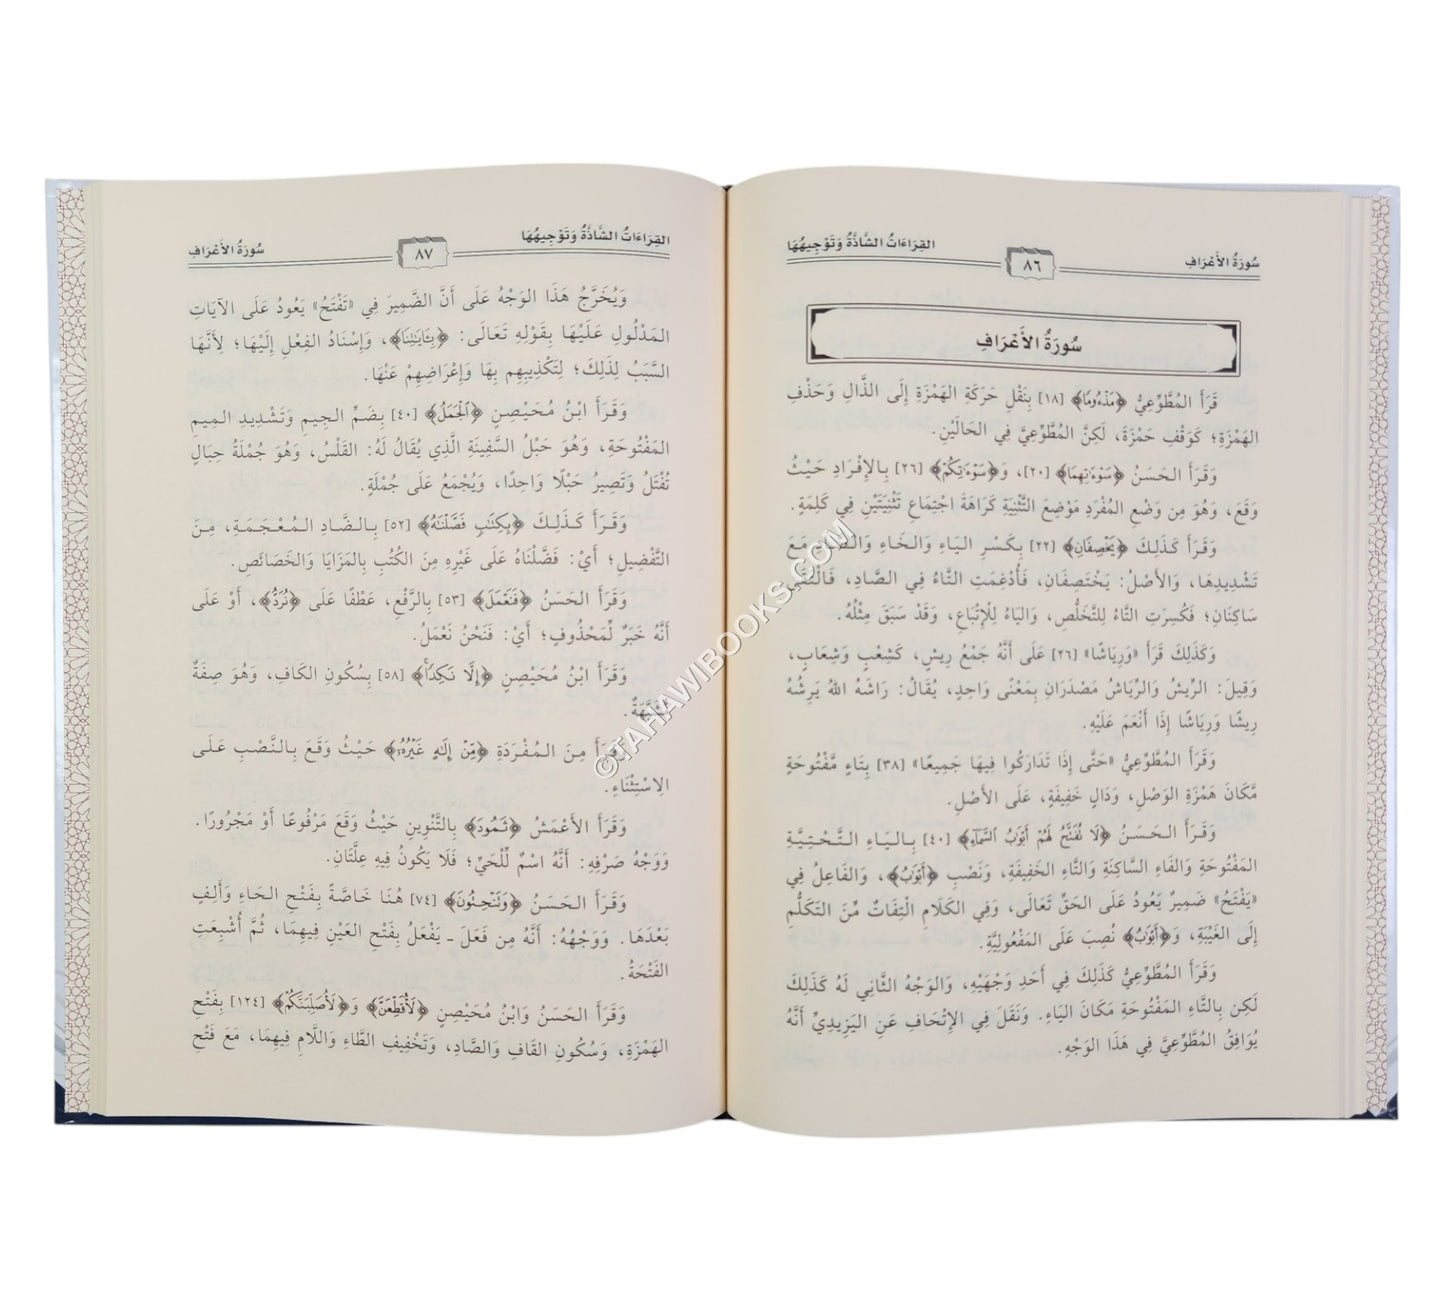 سُورَةُ الأَعْرَافِ
٨٦
القِرَاءَاتُ الشَّاذَّةُ وَتَوْجِيهُهَا
سُورَةُ الأَعْرَافِ
قَرَأَ المُطَّوِّعِيُّ ﴿مَذْءُومًا﴾ [١٨] بِنَقْلِ حَرَكَةِ الهَمْزَةِ إِلَى الذَّالِ وَحَذْفِ
الهَمْزَةِ؛ كَوَقْفِ حَمْزَةَ، لَكِنَّ المُطَّوِّعِيَّ فِي الحَالَيْنِ.
وَقَرَأَ الحَسَنُ ﴿سَوْءَٰتِهِمَا﴾ [٢٠]، وَ﴿سَوْءَٰتِكُمْ﴾ [٢٦] بِالإِفْرَادِ حَيْثُ
وَقَعَ، وَهُوَ مِن وَضْعِ المُفْرَدِ مَوْضِعَ التَّثْنِيَةِ كَرَاهَةَ اجْتِمَاعِ تَثْنِيَتَيْنِ فِي كَلِمَةٍ.
وَقَرَأَ كَذَلِكَ ﴿يَخْصِفَانِ﴾ [٢٢] بِكَسْرِ اليَاءِ وَالخَاءِ وَالصَّادِ مَعَ
تَشْدِيدِهَا، وَالأَصْلُ: يَخْتَصِفَانِ، فَأُدْغِمَتِ التَّاءُ فِي الصَّادِ، فَالْتَقَى
سَاكِنَانِ؛ فَكُسِرَتِ التَّاءُ لِلتَّخَلُّصِ، وَاليَاءُ لِلْإِتْبَاعِ، وَقَدْ سَبَقَ مِثْلُهُ.
وَكَذَلِكَ قَرَأَ «وَرِيَاشًا» [٢٦] عَلَى أَنَّهُ جَمْعُ رِيشٍ، كَشِعْبٍ وَشِعَابٍ،
وَقِيلَ: الرِّيشُ وَالرِّيَاشُ مَصْدَرَانِ بِمَعْنًى وَاحِدٍ، يُقَالُ: رَاشَهُ اللهُ يَرِيشُهُ
رِيشًا وَرِيَاشًا إِذَا أَنْعَمَ عَلَيْهِ.
وَقَرَأَ المُطَّوِّعِيُّ «حَتَّى إِذَا تَدَارَكُوا فِيهَا جَمِيعًا» [٣٨] بِتَاءٍ مَّفْتُوحَةٍ
مَّكَانَ هَمْزَةِ الوَصْلِ، وَدَالٍ خَفِيفَةٍ، عَلَى الأَصْلِ.
وَقَرَأَ الحَسَنُ ﴿لَا تُفَتَّحُ لَهُمْ أَبْوَٰبُ السَّمَآءِ﴾ [٤٠] بِاليَاءِ التَّحْتِيَّةِ
المَفْتُوحَةِ وَالفَاءِ السَّاكِنَةِ وَالتَّاءِ الخَفِيفَةِ، وَنَصْبِ ﴿أَبْوَٰبُ﴾، وَالفَاعِلُ فِي
«يَفْتَحُ» ضَمِيرٌ يَعُودُ عَلَى الحَقِّ تَعَالَى، وَفِي الكَلَامِ الْتِفَاتٌ مِّنَ التَّكَلُّمِ
إِلَى الغَيْبَةِ، وَ﴿أَبْوَٰبُ﴾ نُصِبَ عَلَى المَفْعُولِيَّةِ.
وَقَرَأَ المُطَّوِّعِيُّ كَذَلِكَ فِي أَحَدِ وَجْهَيْهِ، وَالوَجْهُ الثَّانِي لَهُ كَذَلِكَ
لَكِنْ بِالتَّاءِ المَفْتُوحَةِ مَكَانَ اليَاءِ. وَنَقَلَ فِي الإِتْحَافِ عَنِ اليَزِيدِيِّ أَنَّهُ
يُوَافِقُ المُطَّوِّعِيَّ فِي هَذَا الوَجْهِ.
القِرَاءَاتُ الشَّاذَّةُ وَتَوْجِيهُهَا
٨٧
سُورَةُ الأَعْرَافِ
وَيُخَرَّجُ هَذَا الوَجْهُ عَلَى أَنَّ الضَّمِيرَ فِي «تَفْتَحُ» يَعُودُ عَلَى الآيَاتِ
المَدْلُولِ عَلَيْهَا بِقَوْلِهِ تَعَالَى: ﴿بِـَٔايَٰتِنَا﴾، وَإِسْنَادُ الفِعْلِ إِلَيْهَا؛ لِأَنَّهَا
السَّبَبُ لِذَلِكَ؛ لِتَكْذِيبِهِم بِهَا وَإِعْرَاضِهِمْ عَنْهَا.
وَقَرَأَ ابْنُ مُحَيْصِنٍ ﴿الْجَمَلُ﴾ [٤٠] بِضَمِّ الجِيمِ وَتَشْدِيدِ المِيمِ
المَفْتُوحَةِ، وَهُوَ حَبْلُ السَّفِينَةِ الَّذِي يُقَالُ لَهُ: القَلْسُ، وَهُوَ جُمْلَةُ حِبَالٍ
تُفْتَلُ وَتَصِيرُ حَبْلًا وَاحِدًا، وَيُجْمَعُ عَلَى جُمْلَةٍ.
وَقَرَأَ كَذَلِكَ ﴿بِكِتَٰبٍ فَصَّلْنَٰهُ﴾ [٥٢] بِالضَّادِ المُعْجَمَةِ، مِنَ
التَّفْضِيلِ؛ أَيْ: فَضَّلْنَاهُ عَلَى غَيْرِهِ مِنَ الكُتُبِ بِالمَزَايَا وَالخَصَائِصِ.
وَقَرَأَ الحَسَنُ ﴿فَنَعْمَلَ﴾ [٥٣] بِالرَّفْعِ، عَطْفًا عَلَى ﴿نُرَدُّ﴾، أَوْ عَلَى
أَنَّهُ خَبَرٌ لِّمَحْذُوفٍ؛ أَيْ: فَنَحْنُ نَعْمَلُ.
وَقَرَأَ ابْنُ مُحَيْصِنٍ ﴿إِلَّا نَكِدًا﴾ [٥٨] بِسُكُونِ الكَافِ، وَهُوَ صِفَةٌ
مُشَبَّهَةٌ.
وَقَرَأَ مِنَ المُفْرَدَةِ ﴿مِّنْ إِلَٰهٍ غَيْرُهُۥ﴾ حَيْثُ وَقَعَ بِالنَّصْبِ عَلَى
الِاسْتِثْنَاءِ.
وَقَرَأَ الأَعْمَشُ ﴿ثَمُودَ﴾ بِالتَّنْوِينِ حَيْثُ وَقَعَ مَرْفُوعًا أَوْ مَجْرُورًا.
وَوَجْهُ صَرْفِهِ: أَنَّهُ اسْمٌ لِّلْحَيِّ؛ فَلَا يَكُونُ فِيهِ عِلَّتَانِ.
وَقَرَأَ الحَسَنُ ﴿وَتَنْحِتُونَ﴾ [٧٤] هُنَا خَاصَّةً بِفَتْحِ الحَاءِ وَأَلِفٍ
بَعْدَهَا. وَوَجْهُهُ: أَنَّهُ مِن فَعَلَ ـ يَفْعَلُ بِفَتْحِ العَيْنِ فِيهِمَا، ثُمَّ أُشْبِعَتِ
الفَتْحَةُ.
وَقَرَأَ الحَسَنُ وَابْنُ مُحَيْصِنٍ ﴿لَأُقَطِّعَنَّ﴾ وَ﴿لَأُصَلِّبَنَّكُمْ﴾ [١٢٤] بِفَتْحِ
الهَمْزَةِ، وَسُكُونِ القَافِ وَالصَّادِ، وَتَخْفِيفِ الطَّاءِ وَاللَّامِ فِيهِمَا، مَعَ فَتْحِ
©TAHAWIBOOKS.COM